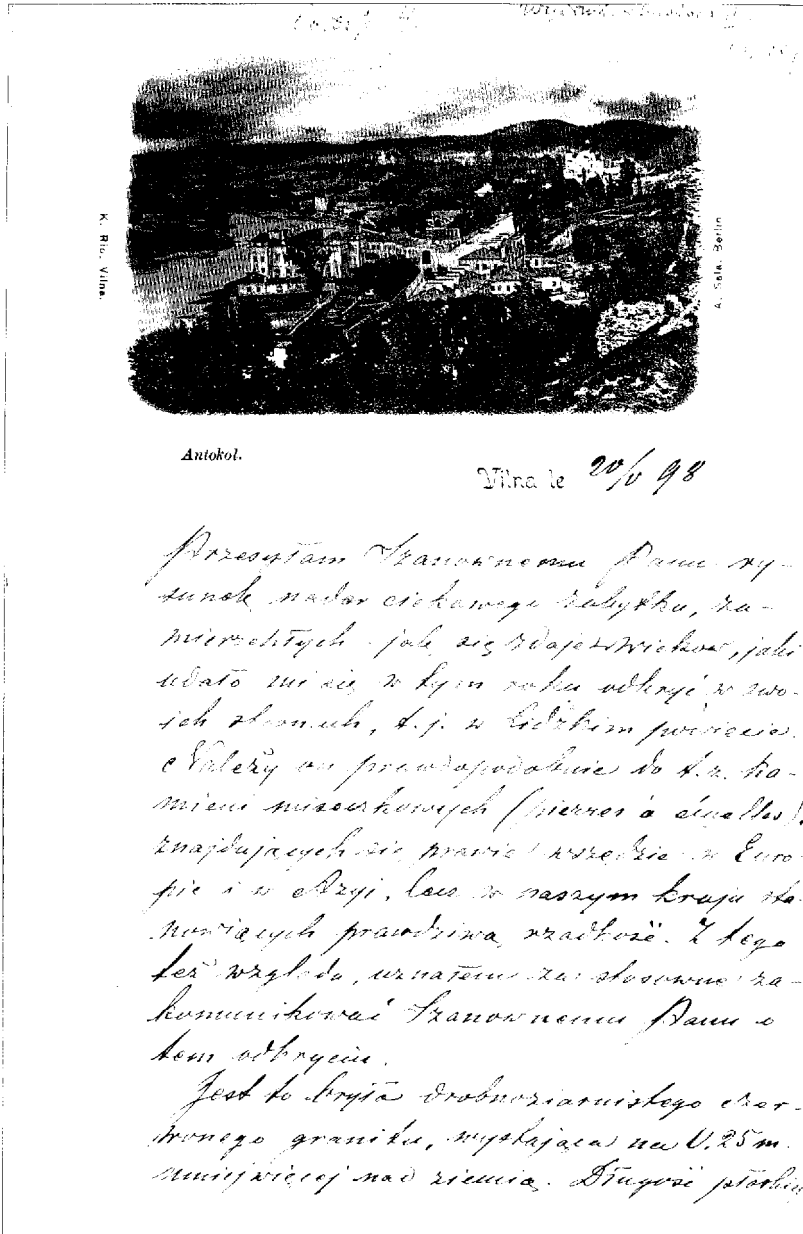 K. Rio. Vilna.
A. Sala. Berlin
Antokol.
Vilna le 20/V 98
Przesyłam Szanownemu Panu ry-
sunek nader ciekawego zabytku, za-
mierzchłych jak się zdaje wieków, jaki
udało mi się w tym roku odkryć w swo-
ich stronach, t.j. w Lidzkim powiecie.
Należy on prawdopodobnie do t.z. ka-
mieni miseczkowych (pierres à écuelles),
znajdujących się prawie wszędzie w Euro-
pie i w Azyi, lecz w naszym kraju sta-
nowiących prawdziwą rzadkość. Z tego
też względu, uznałem za stosowne za-
komunikować Szanownemu Panu o
tem odkryciu.
Jest to bryła drobnoziarnistego czer-
wonego granitu, wystająca na 0.25 m.
mniej więcej nad ziemią. Długość płaskiej